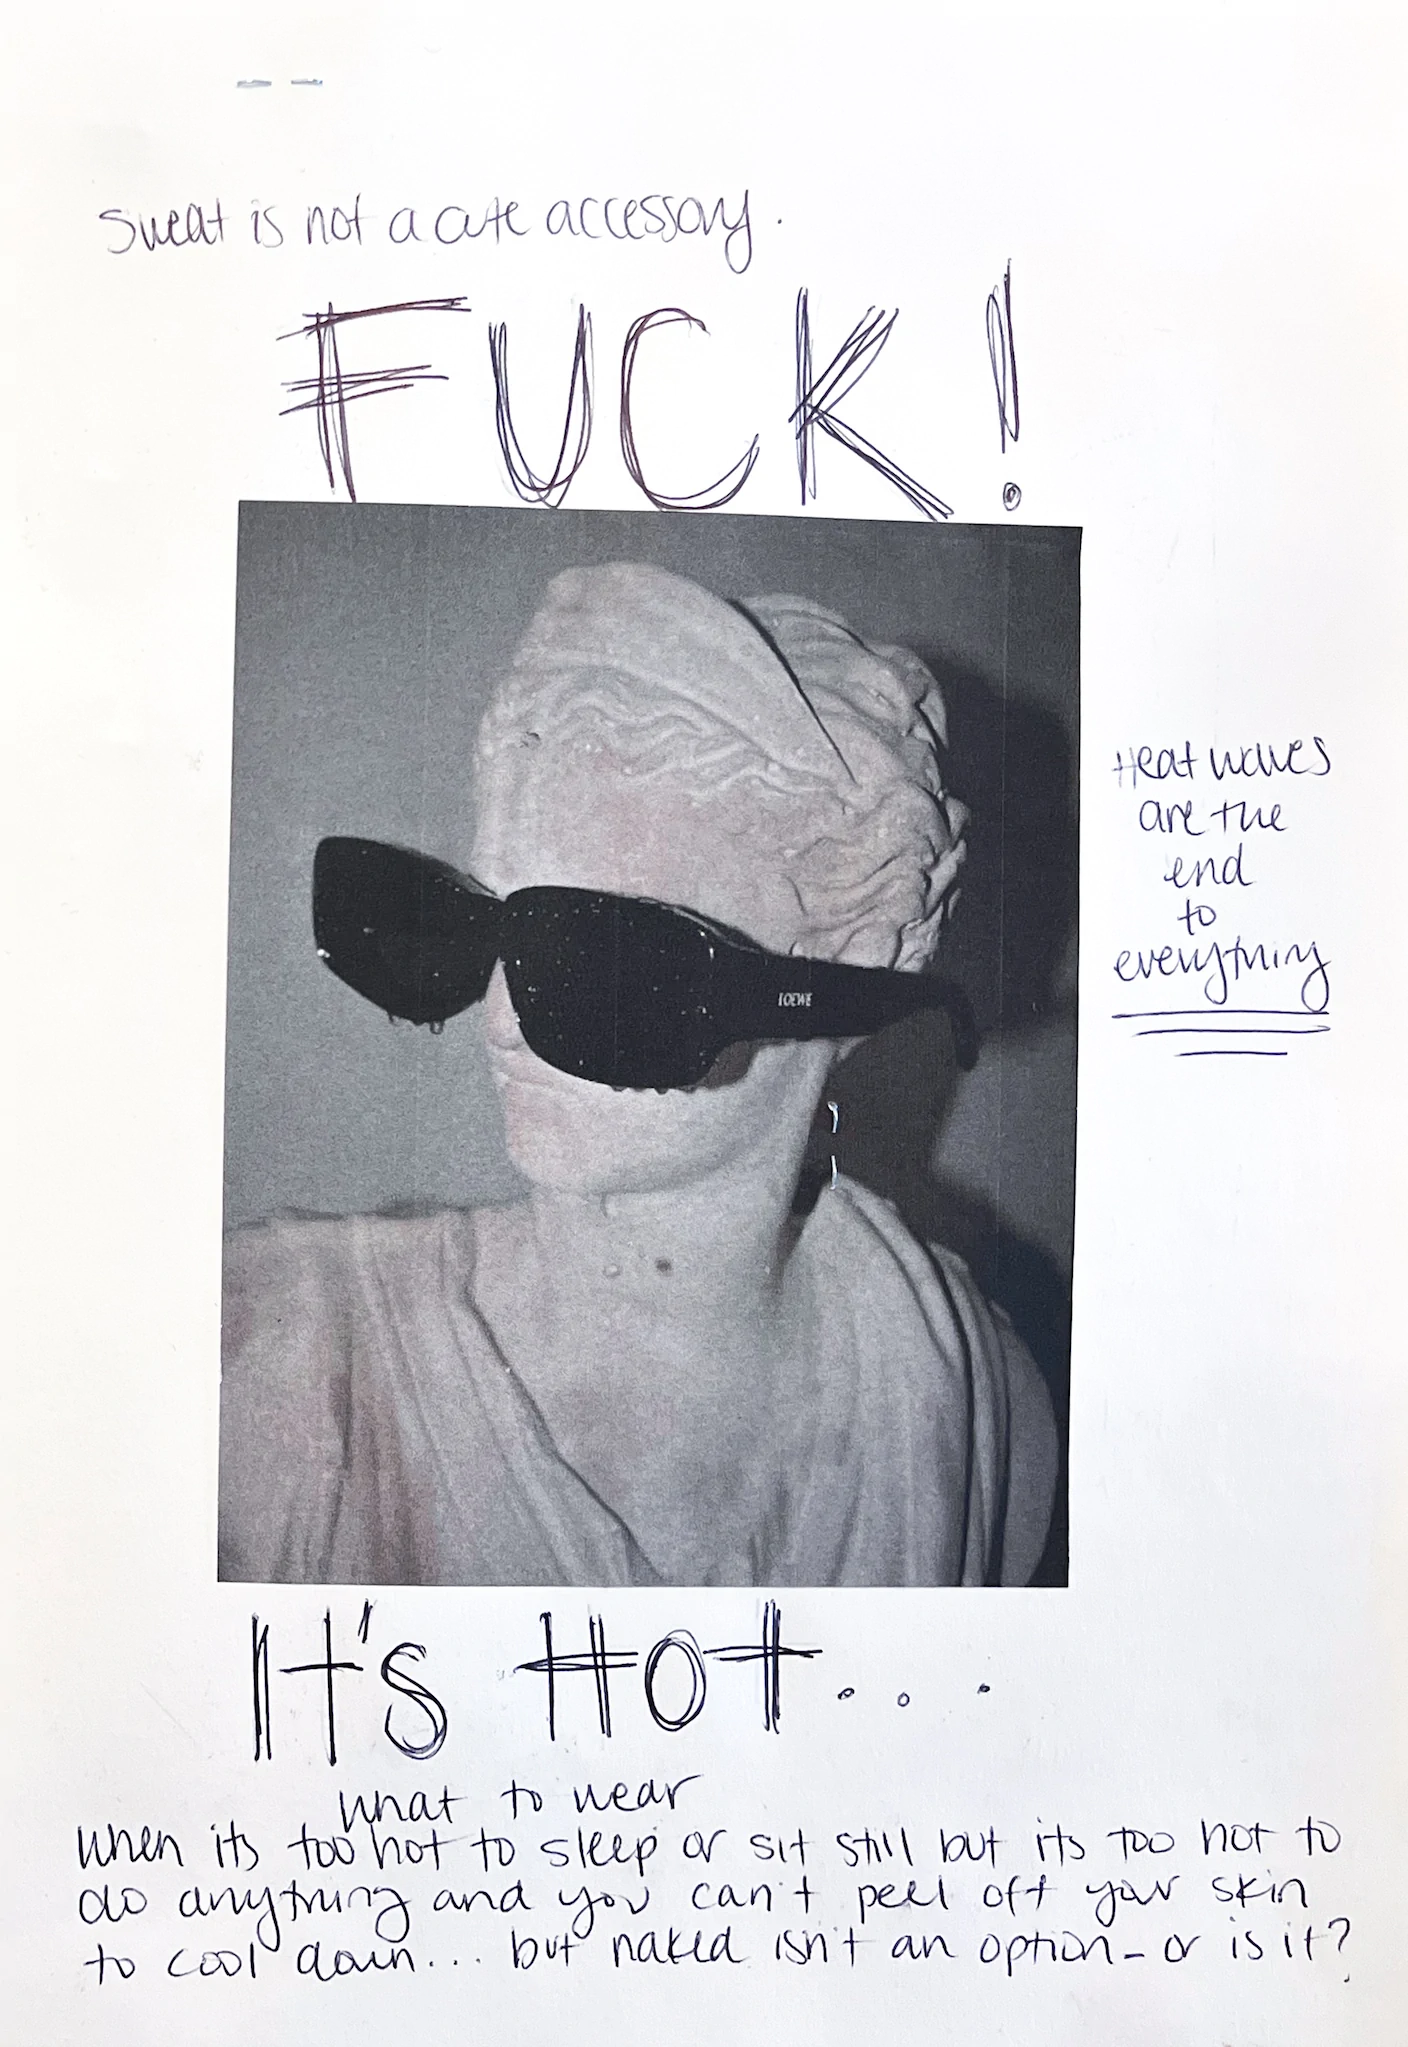 Sweat is not a cute accessory.
FUCK!
Heat waves
are the
end
to
everything
LOEWE
It's Hot...
what to wear
when its too hot to sleep or sit still but its too hot to
do anything and you can't peel off your skin
to cool down... but naked isn't an option - or is it?